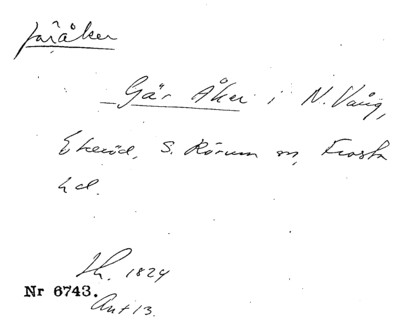 Gäråker
Gär Åker i N. Vång,
Ekeröd, S. Rörum sn, Frosta
hd.
Sk. 1824
Nr 6743.
Ant 13.